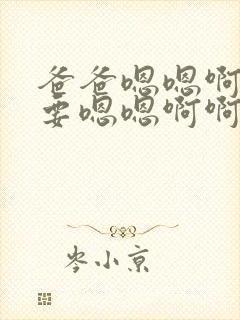 爸爸嗯嗯啊
要嗯嗯啊啊
岑小京